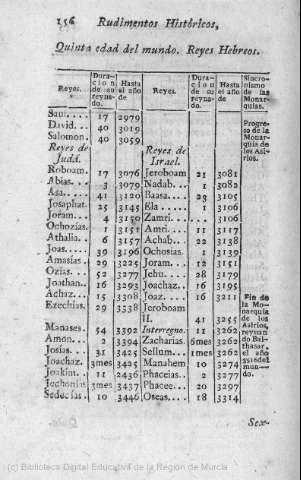 156 Rudimentos Históricos,
Quinta edad del mundo. Reyes Hebreos.
Reyes. Duracion de su reynado. Hasta el año de Reyes. Duracion de su reynado. Hasta el año de Sincronismo de las Monarquías.
Saul..... 17 2979
David... 40 3019
Salomon. 40 3059
Progreso de la Monarquía de los Asirios.
Reyes de Judá. Reyes de Israel.
Roboam. 17 3076 Jeroboam 21 3081
Abias... 3 3079 Nadab... 1 3082
Asa..... 41 3120 Baasa... 23 3105
Josaphat. 25 3145 Ela..... 1 3106
Joram... 4 3150 Zamri.... ... 3106
Ochozias. 1 3151 Amri.... 11 3117
Athalia.. 6 3157 Achab... 22 3138
Joas.... 39 3196 Ochosias. 1 3139
Amasias. 29 3225 Joram... 12 3151
Ozias... 52 3277 Jehu.... 28 3179
Joathan. 16 3293 Joachaz.. 16 3195
Achaz... 15 3308 Joaz.... 16 3211
Ezechias. 29 3338 Jeroboam
II. 41 3255
Manases. 54 3392 Interregno. 11 3262
Amon... 2 3394 Zacharias. 6mes 3262
Josías... 31 3425 Sellum... 1mes 3262
Joachaz. 3mes 3425 Manahem 10 3274
Joakim.. 11 2436 Phaceias.. 2 3277
Jechonias 3mes 3437 Phacee.. 20 3297
Sedecías 10 3446 Oseas... 18 3314
Fin de la Monarquía de los Asirios, reynando Balthasar el año del mundo.
Sex-
(c) Biblioteca Digital Educativa de la Región de Murcia